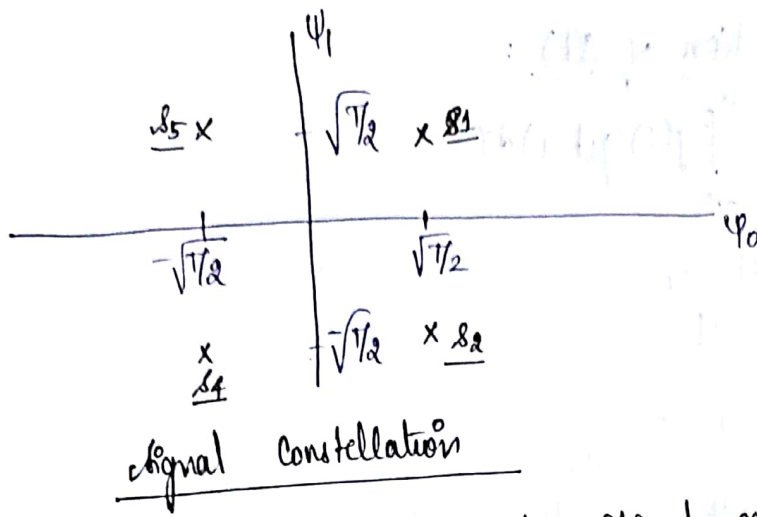 ψ₁
s5 × √T/2 × s1
-√T/2 √T/2 φ₀
× -√T/2 × s2
s4
Signal Constellation